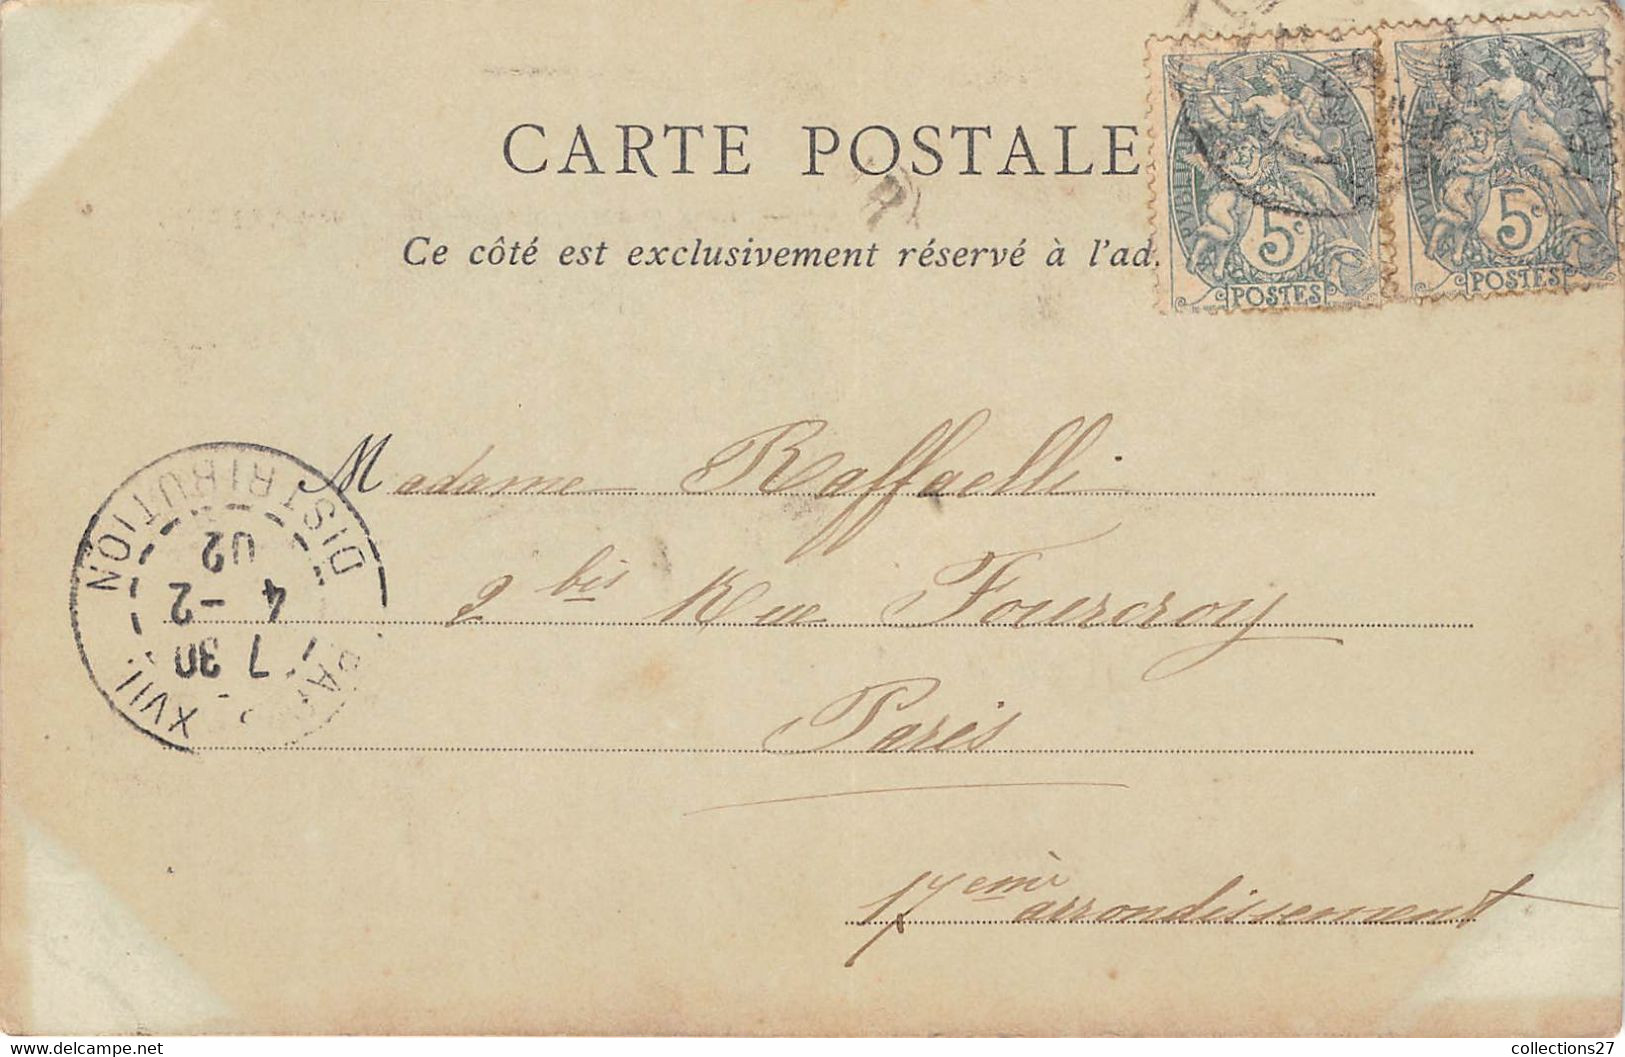 CARTE POSTALE
Ce côté est exclusivement réservé à l'ad
5c
POSTES
5c
POSTES
Madame Raffaelli
2 bis Rue Fourcroy
Paris
17emè arrondissement
DISTRIBUTION
PARIS XVII
7 30
4 -2
02
collections27